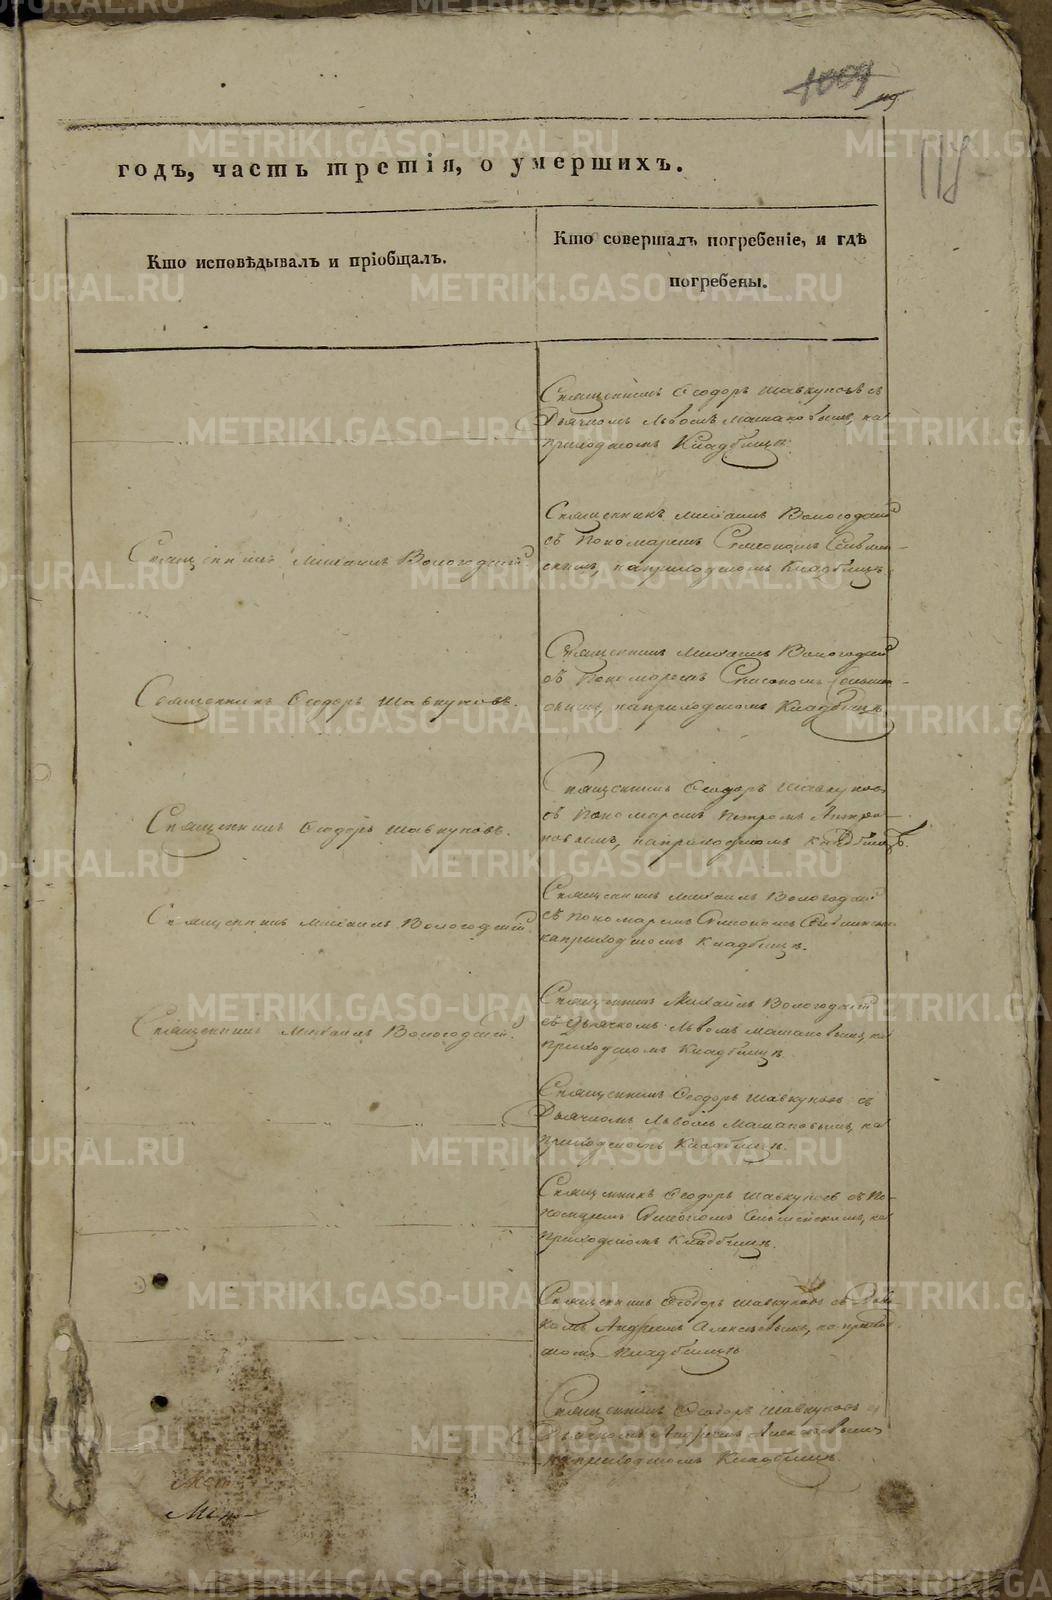 1009
119
119
годъ, часть третія, о умершихъ.
Кто исповѣдывалъ и пріобщалъ.
Кто совершалъ погребеніе, и гдѣ
погребены.
Священникъ Ѳеодоръ Шавкуновъ съ
Дьячкомъ Львомъ на
приходскомъ Кладбищѣ.
Священникъ Михаилъ Вологодскій.
Священникъ Михаилъ Вологодскій
съ Пономаремъ Симеономъ
на приходскомъ Кладбищѣ.
Священникъ Ѳеодоръ Шавкуновъ.
Священникъ Михаилъ Вологодскій
съ Пономаремъ Симеономъ
на приходскомъ Кладбищѣ
Священникъ Ѳеодоръ Шавкуновъ.
Священникъ Ѳеодоръ Шавкуновъ
съ Пономаремъ Петромъ
на приходскомъ Кладбищѣ.
Священникъ Михаилъ Вологодскій.
Священникъ Михаилъ Вологодскій
съ Пономаремъ Симеономъ
на приходскомъ Кладбищѣ.
Священникъ Михаилъ Вологодскій.
Священникъ Михаилъ Вологодскій
съ Дьячкомъ Львомъ на
приходскомъ Кладбищѣ.
Священникъ Ѳеодоръ Шавкуновъ съ
Дьячкомъ Львомъ на
приходскомъ Кладбищѣ.
Священникъ Ѳеодоръ Шавкуновъ съ По-
номаремъ Симеономъ на
приходскомъ Кладбищѣ.
Священникъ Ѳеодоръ Шавкуновъ съ Дьяч-
комъ Андреемъ Алексѣевымъ, на приход-
скомъ Кладбищѣ
Священникъ Ѳеодоръ Шавкуновъ съ
Дьячкомъ Андреемъ Алексѣевымъ
на приходскомъ Кладбищѣ.
METRIKI.GASO-URAL.RU